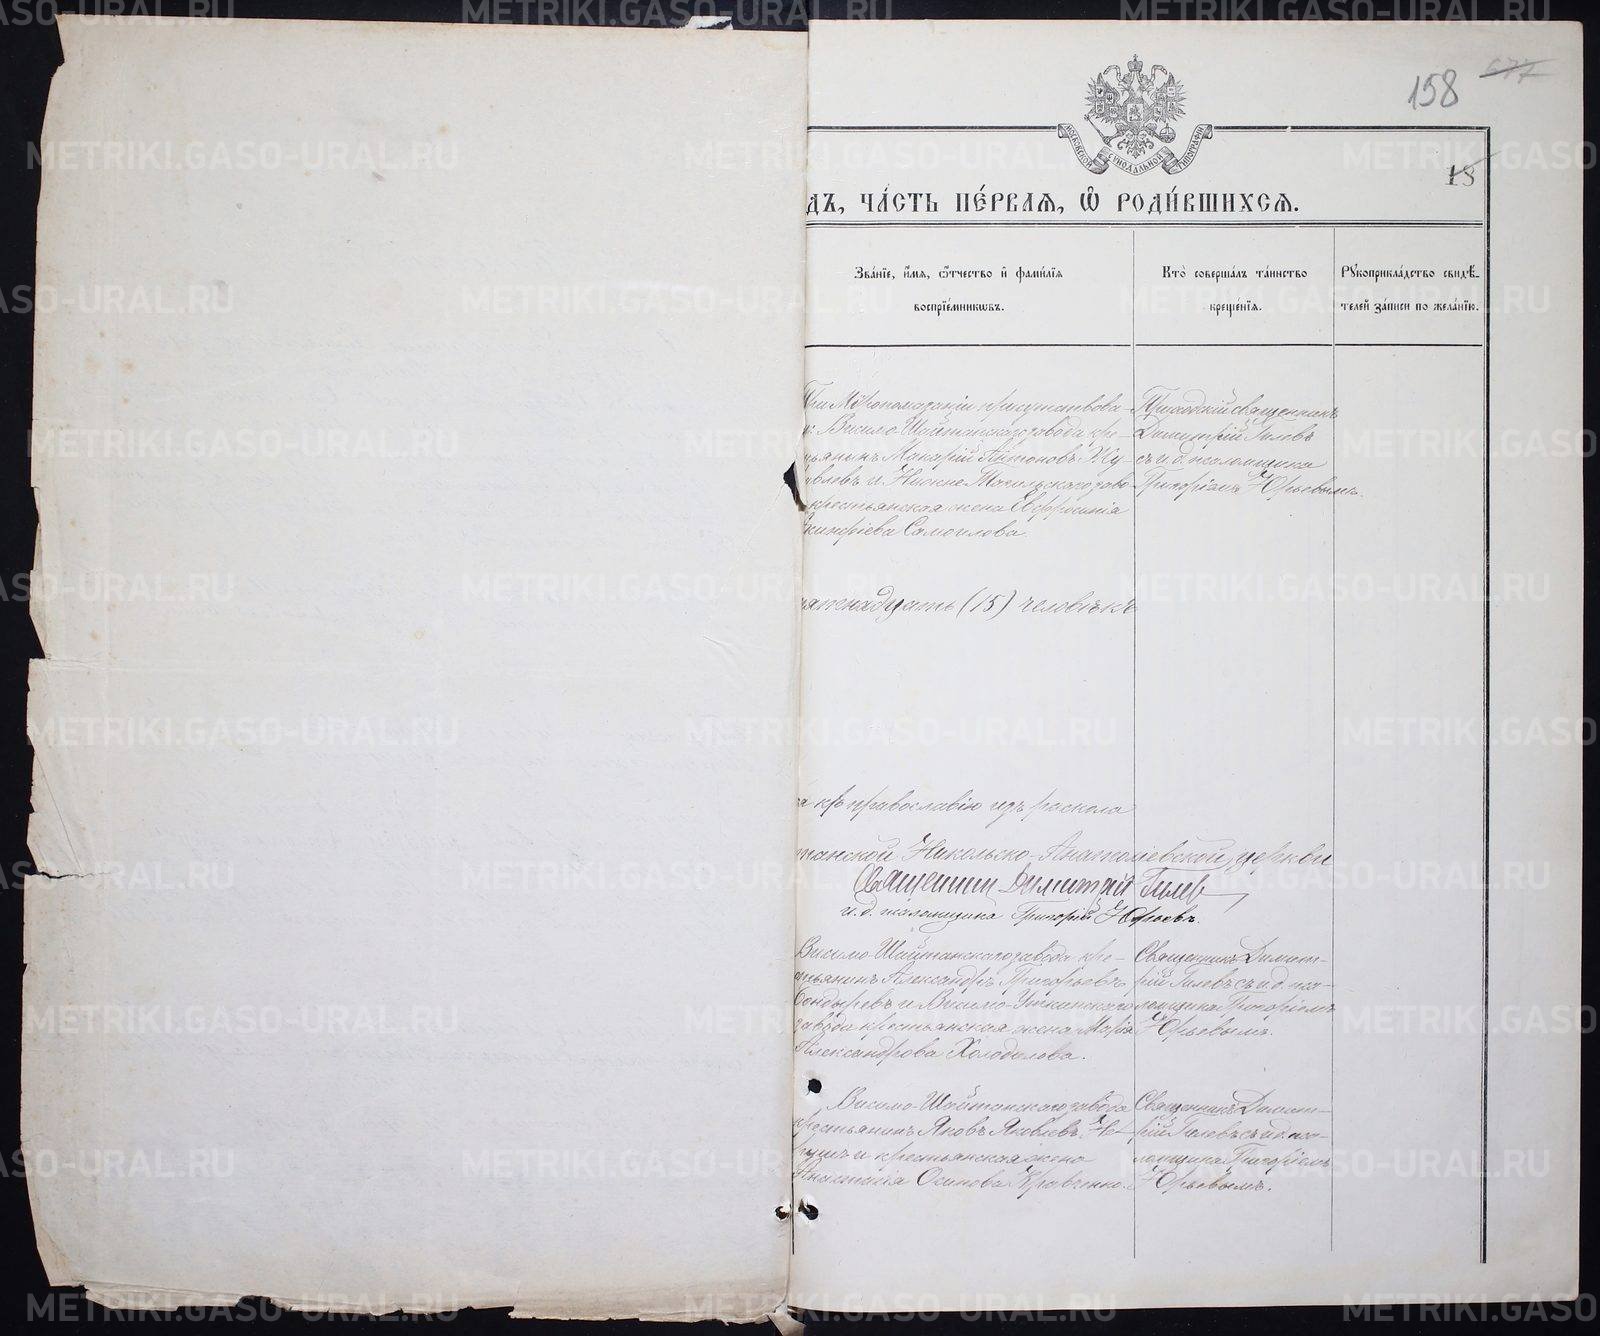 158
677
МОСКОВСКОЙ СУНОДАЛЬНОЙ ТИПОГРАФІИ
18
дъ, ча́сть пе́рваѧ, ѡ҆ роди́вшихсѧ.
Зва́нїе, и҆́мѧ, ѻ҆́тчество и҆ фами́лїѧ
воспрїе́мникѡвъ.
Кто̀ соверша́лъ та́инство
креще́нїѧ.
Рꙋкоприкла́дство свидѣ́-
телей за́писи по жела́нїю.
При Мѵропомазаніи присутствова-
Висимо-Шайтанскаго завода кре-
стьянинъ Макарій Антоновъ Жу-
равлевъ и Нижне Тагильскаго заво-
крестьянская жена Евфросинія
Акинфіева Самоилова.
Приходскій священникъ
Димитрій Гилевъ
съ и. д. псаломщика
Григоріемъ Юрьевымъ.
пятнадцать (15) человѣкъ
къ православію изъ раскола
танской Никольско-Анатоліевской церкви
Священник Димитрій Гилев
и. д. псаломщика Григорій Юрьевъ.
Висимо-Шайтанскаго завода кре-
стьянинъ Александръ Григорьевъ
Бондыревъ и Висимо-Уткинскаго
завода крестьянская жена Марія
Александрова Холодилова.
Священникъ Димит-
рій Гилевъ съ и. д. пса-
ломщика Григоріемъ
Юрьевымъ.
Висимо-Шайтанскаго завода
крестьянинъ Яковъ Яковлевъ
и крестьянская жена
Анастасія Осипова Кравченко.
Священникъ Димит-
рій Гилевъ съ и. д. пса-
ломщика Григоріемъ
Юрьевымъ.
METRIKI.GASO-URAL.RU